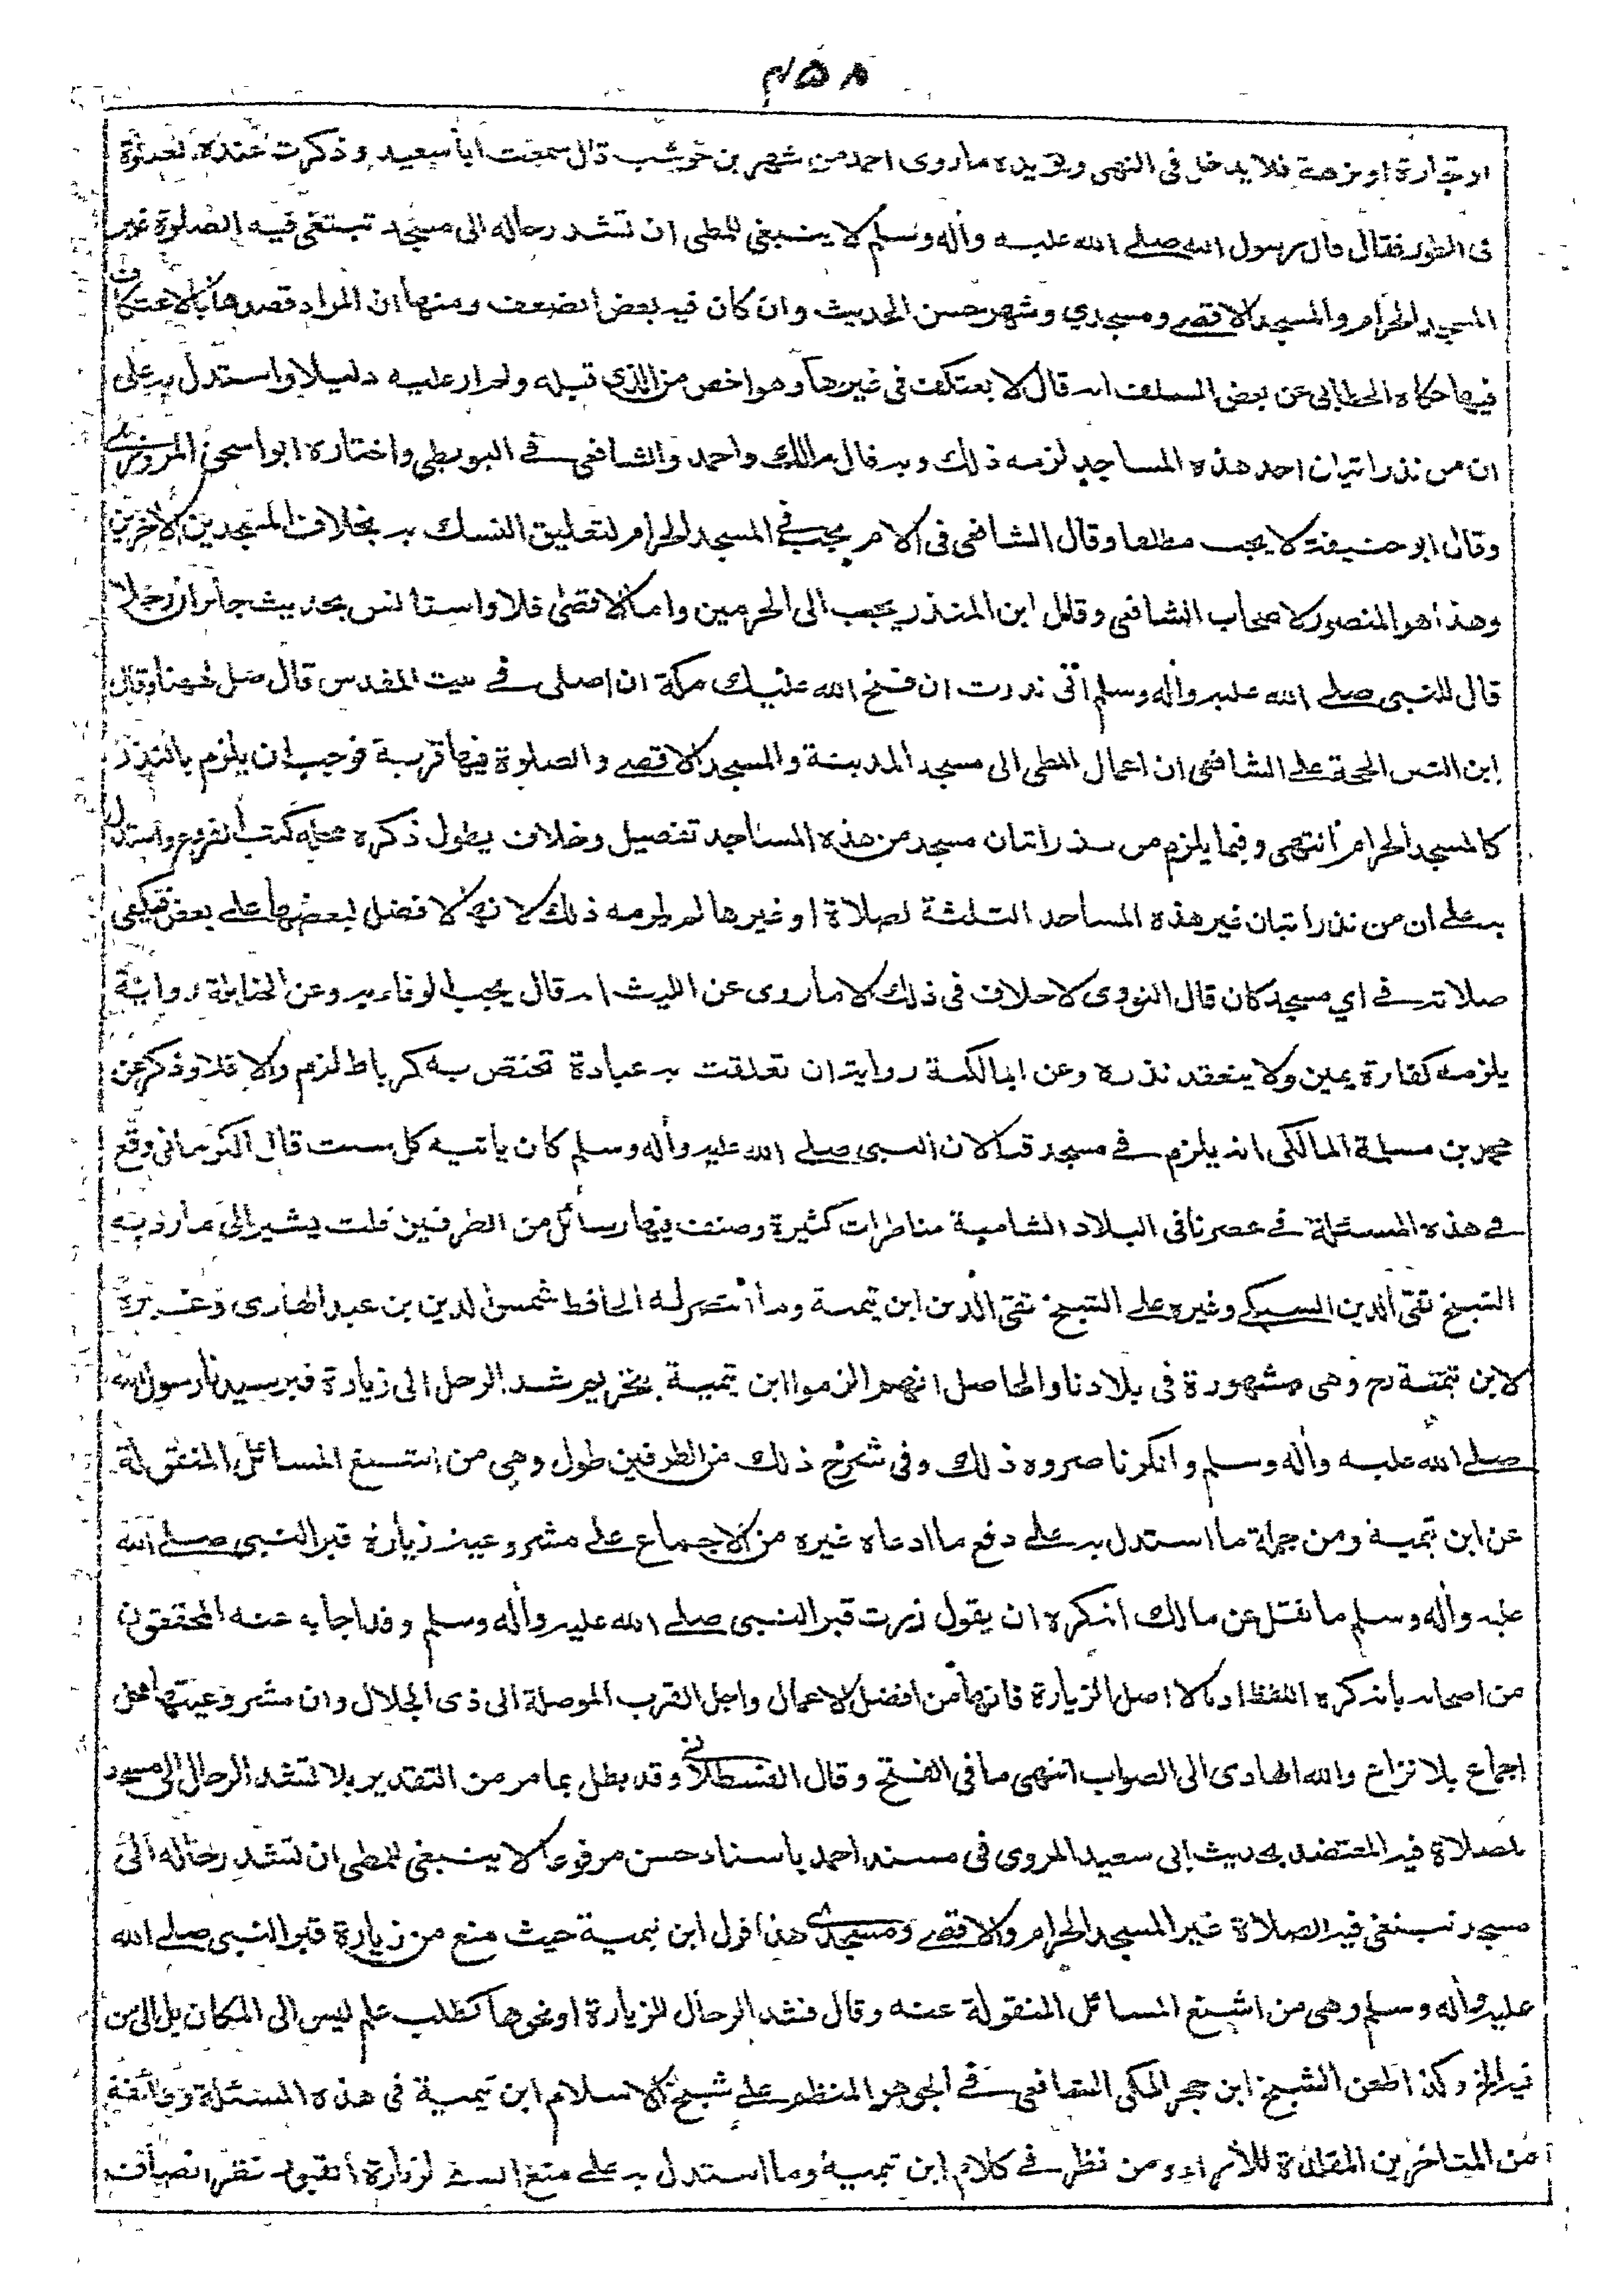 ٤٥٨
او تجارة او نزهة فلا يدخل فى النهى ويؤيده ماروى احمد من شهر بن حوشب قال سمعت ابا سعيد وذكرت عنده الصلوة
فى الطور فقال قال رسول الله صلے الله عليه واله وسلم لا ينبغى للمطى ان تشد رحاله الى مسجد تبتغى فيه الصلوة غير
المسجد الحرام والمسجد الاقصے ومسجدي وشهر حسن الحديث وان كان فيه بعض الضعف ومنها ان المراد قصدها بالاعتكاف
فيها حكاه الخطابى عن بعض السلف انه قال لا يعتكف فى غيرها وهو اخص من الذى قبله ولم ار عليه دليلا واستدل به على
ان من نذر اتيان احد هذه المساجد لزمه ذلك وبه قال مالك واحمد والشافعى فے البويطى واختاره ابو اسحق المروزى
وقال ابو حنيفة لا يجب مطلقا وقال الشافعى فى الام يجب فے المسجد الحرام لتعليق النسك به بخلاف المسجدين الاخرين
وهذا هو المنصور لاصحاب الشافعى وقال ابن المنذر يجب الى الحرمين واما الاقصى فلا واستانس بحديث جابر ان رجلا
قال للنبى صلے الله عليه واله وسلم انى نذرت ان فتح الله عليك مكة ان اصلى فے بيت المقدس قال صل ههنا وقال
ابن التين الحجة علے الشافعى ان اعمال المطى الى مسجد المدينة والمسجد الاقصے والصلوة فيها قربة فوجب ان يلزم بالنذر
كالمسجد الحرام انتهى وفيما يلزم من نذر اتيان مسجد من هذه المساجد تفصيل وخلاف يطول ذكره محله كتب الفروع واستدل
به علے ان من نذر اتيان غير هذه المساجد الثلثة لصلاة او غيرها لم يلزمه ذلك لانها لا فضل لبعضها علے بعض فتكفى
صلاته فے اي مسجد كان قال النووى لا خلاف فى ذلك الا ماروى عن الليث انه قال يجب الوفاء به وعن الحنابلة رواية
يلزمه كفارة يمين ولا ينعقد نذره وعن المالكية رواية ان تعلقت به عبادة تختص به كرباط لزم والا فلا وذكر عن
محمد بن مسلمة المالكى انه يلزم فے مسجد قبا لان النبى صلے الله عليه واله وسلم كان ياتيه كل سبت قال الكرمانى وقع
فے هذه المسئلة فے عصرنا فى البلاد الشامية مناظرات كثيرة وصنف فيها رسائل من الطرفين قلت يشير الى ما رد به
الشيخ تقى الدين السبكے وغيره علے الشيخ تقى الدين ابن تيمية وما انتصر له الحافظ شمس الدين بن عبد الهادى وغيره
لابن تيمية رح وهى مشهورة فى بلادنا والحاصل انهم الزموا ابن تيمية بتحريم شد الرحل الى زيارة قبر سيدنا رسول الله
صلے الله عليه واله وسلم وانكرنا صوره ذلك وفى شرح ذلك من الطرفين طول وهى من ابشع المسائل المنقولة
عن ابن تيمية ومن جملة ما استدل به علے دفع ما ادعاه غيره من الاجماع علے مشروعية زيارة قبر النبى صلے الله
عليه واله وسلم ما نقل عن مالك انه كره ان يقول زرت قبر النبى صلے الله عليه واله وسلم وقد اجابه عنه المحققون
من اصحابه بانه كره اللفظ ادبا لا اصل الزيارة فانها من افضل الاعمال واجل القرب الموصلة الى ذى الجلال وان مشروعيتها محل
اجماع بلا نزاع والله الهادى الى الصواب انتهى ما فى الفتح وقال القسطلانى وقد بطل بما مر من التقدير بلا تشد الرحال الى مسجد
لصلاة فيه المعتضد بحديث ابى سعيد المروى فى مسند احمد باسناد حسن مرفوعا لا ينبغى للمطى ان تشد رحاله الى
مسجد تبتغى فيه الصلاة غير المسجد الحرام والاقصے ومسجدى هذا قول ابن تيمية حيث منع من زيارة قبر النبى صلے الله
عليه واله وسلم وهى من اشبع المسائل المنقولة عنه وقال فشد الرحال للزيارة او نحوها كطلب علم ليس الى المكان بل الى من
فيه الخ وكذا طعن الشيخ ابن حجر المكى الشافعى فے الجوهر المنظم علے شيخ الاسلام ابن تيمية فى هذه المسئلة وطائفة
من المتاخرين المقلدة للآراء ومن نظر فے كلام ابن تيمية وما استدل به على منع السفر لزيارة القبور نظر انصاف